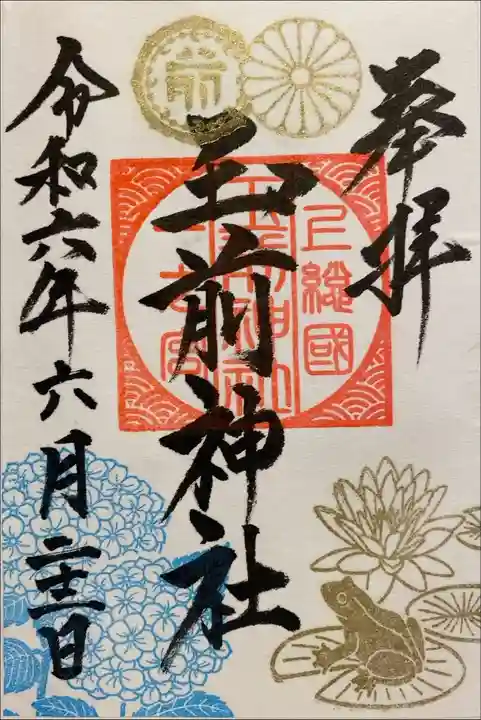 奉拝
上總國
玉前神社
一之宮
玉前神社
令和六年六月二十二日